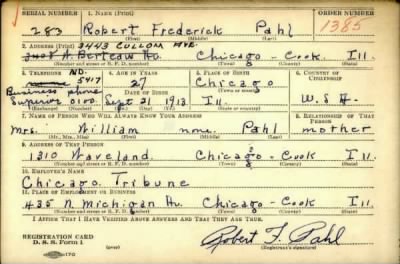 SERIAL NUMBER 1. NAME (Print) ORDER NUMBER
283 Robert Frederick Pahl 1385
(First) (Middle) (Last)
2. ADDRESS (Print) 3443 CULLOM AVE.
Berteau Av. Chicago - Cook Ill.
(Number and street or R. F. D. number) (Town) (County) (State)
3. TELEPHONE 4. AGE IN YEARS 5. PLACE OF BIRTH 6. COUNTRY OF CITIZENSHIP
5417 27 Chicago
Business phone DATE OF BIRTH (Town or county)
Superior 0100. Sept 21 1913 Ill. U.S.A.
(Mo.) (Day) (Yr.) (State or country)
7. NAME OF PERSON WHO WILL ALWAYS KNOW YOUR ADDRESS 8. RELATIONSHIP OF THAT PERSON
Mrs. William none. Pahl mother
(Mr., Mrs., Miss) (First) (Middle) (Last)
9. ADDRESS OF THAT PERSON
1310 Waveland. Chicago - Cook Ill.
(Number and street or R. F. D. number) (Town) (County) (State)
10. EMPLOYER'S NAME
Chicago Tribune
11. PLACE OF EMPLOYMENT OR BUSINESS
435 N. Michigan Av. Chicago - Cook Ill
(Number and street or R. F. D. number) (Town) (County) (State)
I AFFIRM THAT I HAVE VERIFIED ABOVE ANSWERS AND THAT THEY ARE TRUE.
REGISTRATION CARD
D. S. S. Form 1 Robert F. Pahl
(Registrant's signature)